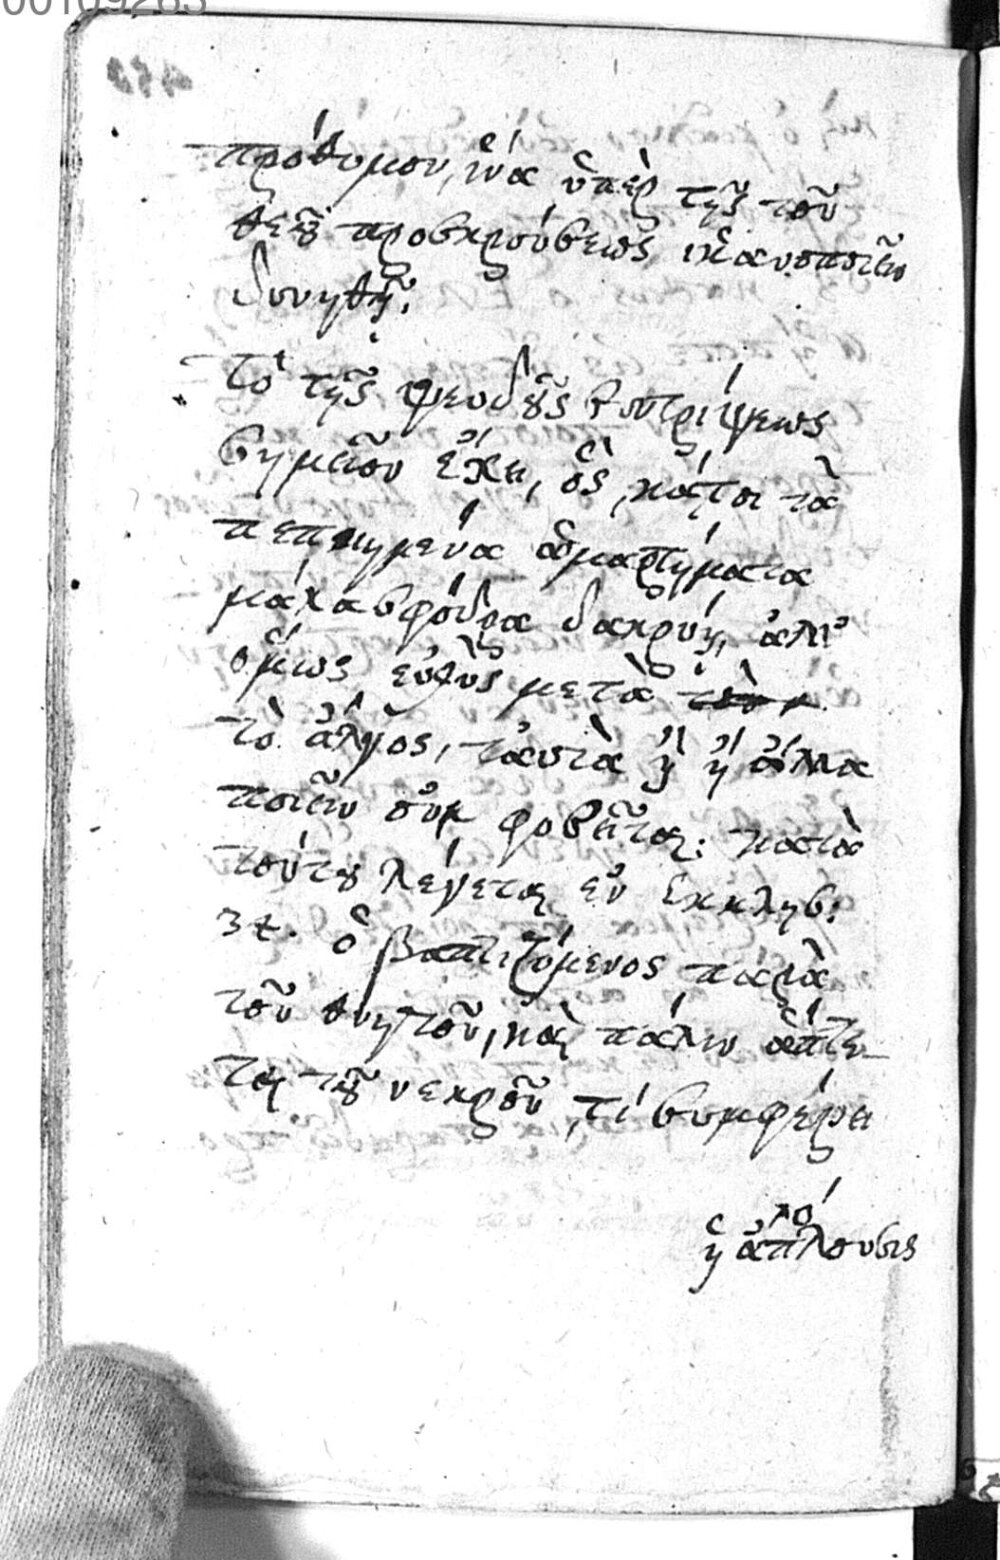 00109263
πρόθυμον, ἵνα ὑπὲρ τῆς τοῦ
θεοῦ προσκρούσεως, ἱκανοποιεῖν
δυνηθῇ.
Τὸ τῆς ψευδοῦς συντρίψεως
σημεῖον ἔχει, ὃς κᾄτοι τὰ
πεποιημένα ἁμαρτήματα
μάλα σφόδρα δακρύῃ, ἀλλ'
ὅμως εὐθὺς μετὰ
τὸ ἄλγος, ταὐτὰ ἢ ἄλλα
ποιεῖν οὐκ φοβεῖται: κατὰ
τούτου λέγεται ἐν Ἐκκλησ:
34. ὁ βαπτιζόμενος παρὰ
τοῦ θνητοῦ, καὶ πάλιν ἅπτε-
ται τοῦ νεκροῦ, τί συμφέρει
ἡ ἀπόλουσις